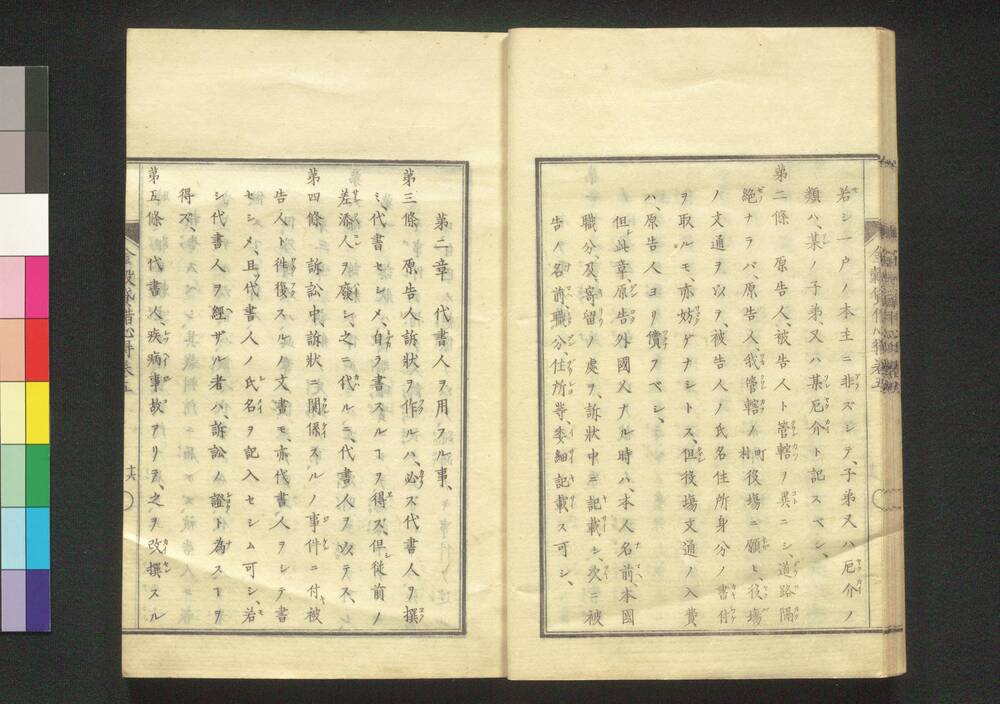 若シ一戸ノ本主ニ非ズシテ、子弟又ハ厄介ノ
類ハ、某ノ子弟又ハ某厄介ト記スベシ、
第二條　原告人、被告人ト管轄ヲ異ニシ、道路隔
絶ナラバ、原告人、我管轄ノ町村役塲ニ願ヒ、役塲
ノ文通ヲ以テ、被告人ノ氏名住所身分ノ書付
ヲ取ルモ、亦妨ゲナシトス、但役塲文通ノ入費
ハ、原告人ヨリ償フベシ、
但此章、原告外國人ナル時ハ、本人名前、本國
職分、及、寄留ノ處ヲ、訴狀中ニ記載シ、次ニ被
告ノ名前、職分、住所等、委細記載ス可シ、
第二章　代書人ヲ用フル事、
第三條　原告人訴狀ヲ作ルハ、必ズ代書人ヲ撰
ミ、代書セシメ、自ラ書スルヿヲ得ズ、但従前ノ
差添人ヲ廢シ、之ニ代ルニ、代書人ヲ以テス、
第四條　訴訟中、訴狀ニ關係スルノ事件ニ付被
告人ト往復スルノ文書モ、亦代書人ヲシテ書
セシメ、且代書人ノ氏名ヲ記入セシム可シ、若
シ代書人ヲ經ザル者ハ、訴訟ノ證ト為スヿヲ
得ズ、
第五條　代書人、疾病事故アリテ、之ヲ改撰スル
十六